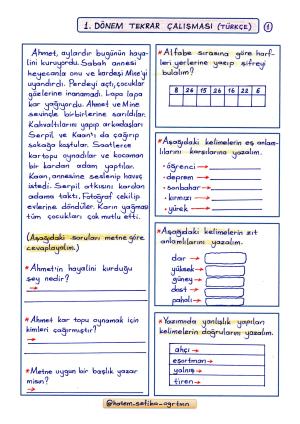 1. DÖNEM TEKRAR ÇALIŞMASI (TÜRKÇE)
1
Ahmet, aylardır bugünün haya-
lini kuruyordu. Sabah annesi
heyecanla onu ve kardeşi Mine'yi
uyandırdı. Perdeyi açtı, çocuklar
gözlerine inanamadı. Lapa lapa
kar yağıyordu. Ahmet ve Mine
sevinçle birbirlerine sarıldılar.
Kahvaltılarını yapıp arkadaşları
Serpil ve Kaan'ı da çağırıp
sokağa koştular. Saatlerce
kartopu oynadılar ve kocaman
bir kardan adam yaptılar.
Kaan, annesine seslenip havuç
istedi. Serpil atkısını kardan
adama taktı. Fotoğraf çekilip
evlerine döndüler. Karın yağması
tüm çocukları çok mutlu etti.
(Aşağıdaki soruları metne göre
cevaplayalım.)
* Ahmet'in hayalini kurduğu
şey nedir?
* Ahmet kar topu oynamak için
kimleri çağırmıştır?
* Metne uygun bir başlık yazar
mısın?
* Alfabe sırasına göre harf-
leri yerlerine yazıp şifreyi
bulalım?
8 26 15 26 16 22 6
* Aşağıdaki kelimelerin eş anlam-
lılarını karşılarına yazalım.
• öğrenci
• deprem
• sonbahar
• kırmızı
• yürek
* Aşağıdaki kelimelerin zıt
anlamlılarını yazalım.
dar
yüksek
güney
dost
pahalı
* Yazımında yanlışlık yapılan
kelimelerin doğrularını yazalım.
ahçı
eşortman
yalnış
tiren
@hatem_sefika_ogrtmn